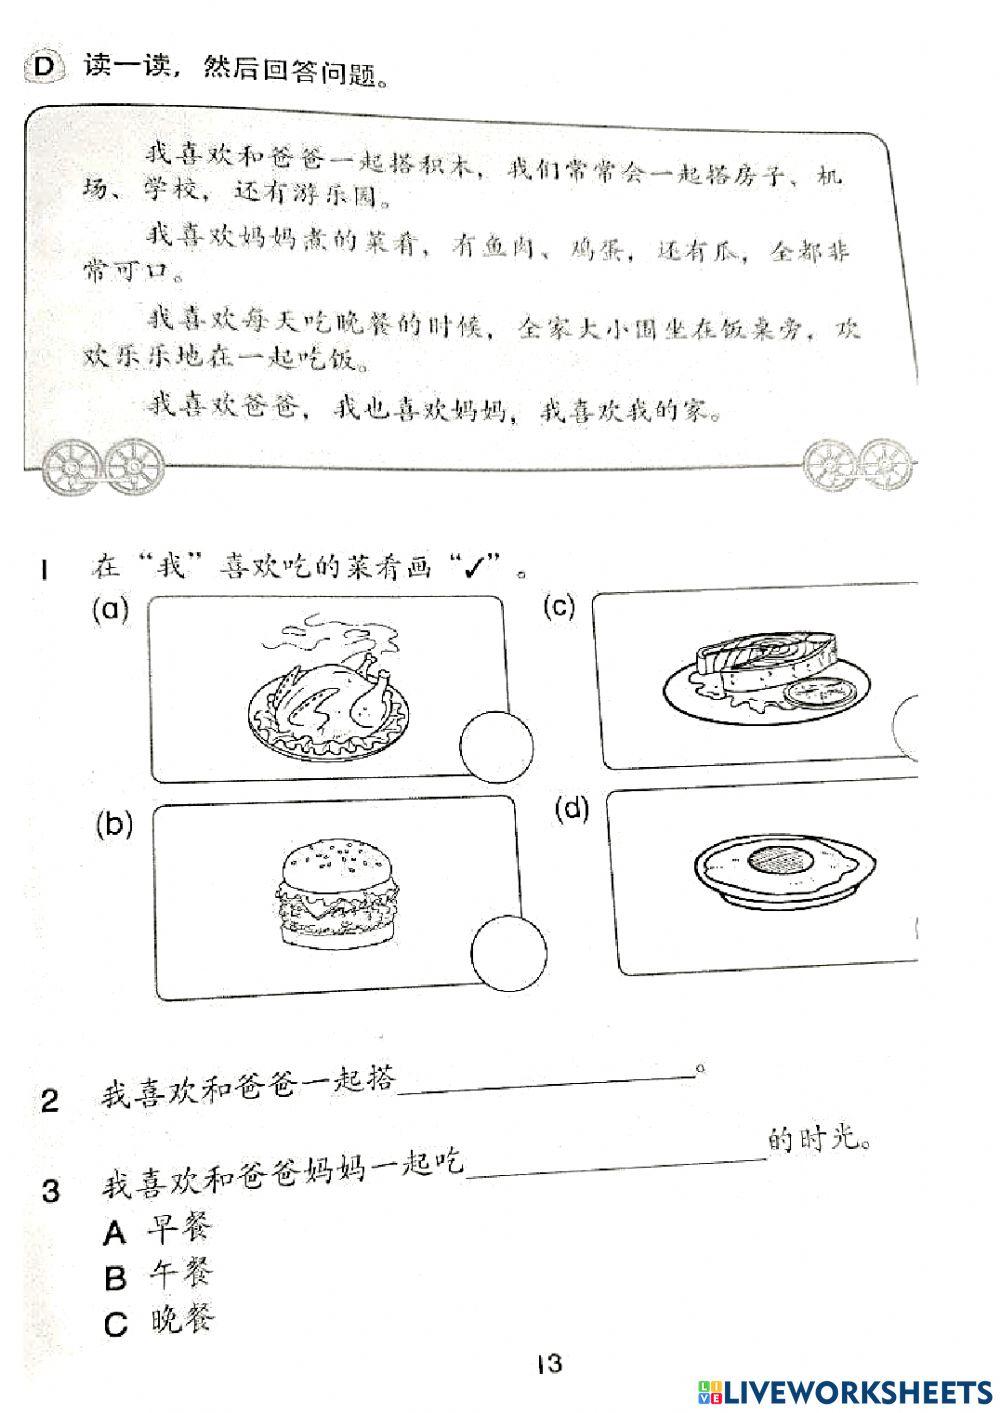 D 读一读，然后回答问题。
我喜欢和爸爸一起搭积木，我们常常会一起搭房子、机
场、学校，还有游乐园。
我喜欢妈妈煮的菜肴，有鱼肉、鸡蛋，还有瓜，全都非
常可口。
我喜欢每天吃晚餐的时候，全家大小围坐在饭桌旁，欢
欢乐乐地在一起吃饭。
我喜欢爸爸，我也喜欢妈妈，我喜欢我的家。
1 在“我”喜欢吃的菜肴画“✓”。
(a)
(c)
(b)
(d)
2 我喜欢和爸爸一起搭____________________。
3 我喜欢和爸爸妈妈一起吃____________________的时光。
A 早餐
B 午餐
C 晚餐
13
LIVE LIVEWORKSHEETS